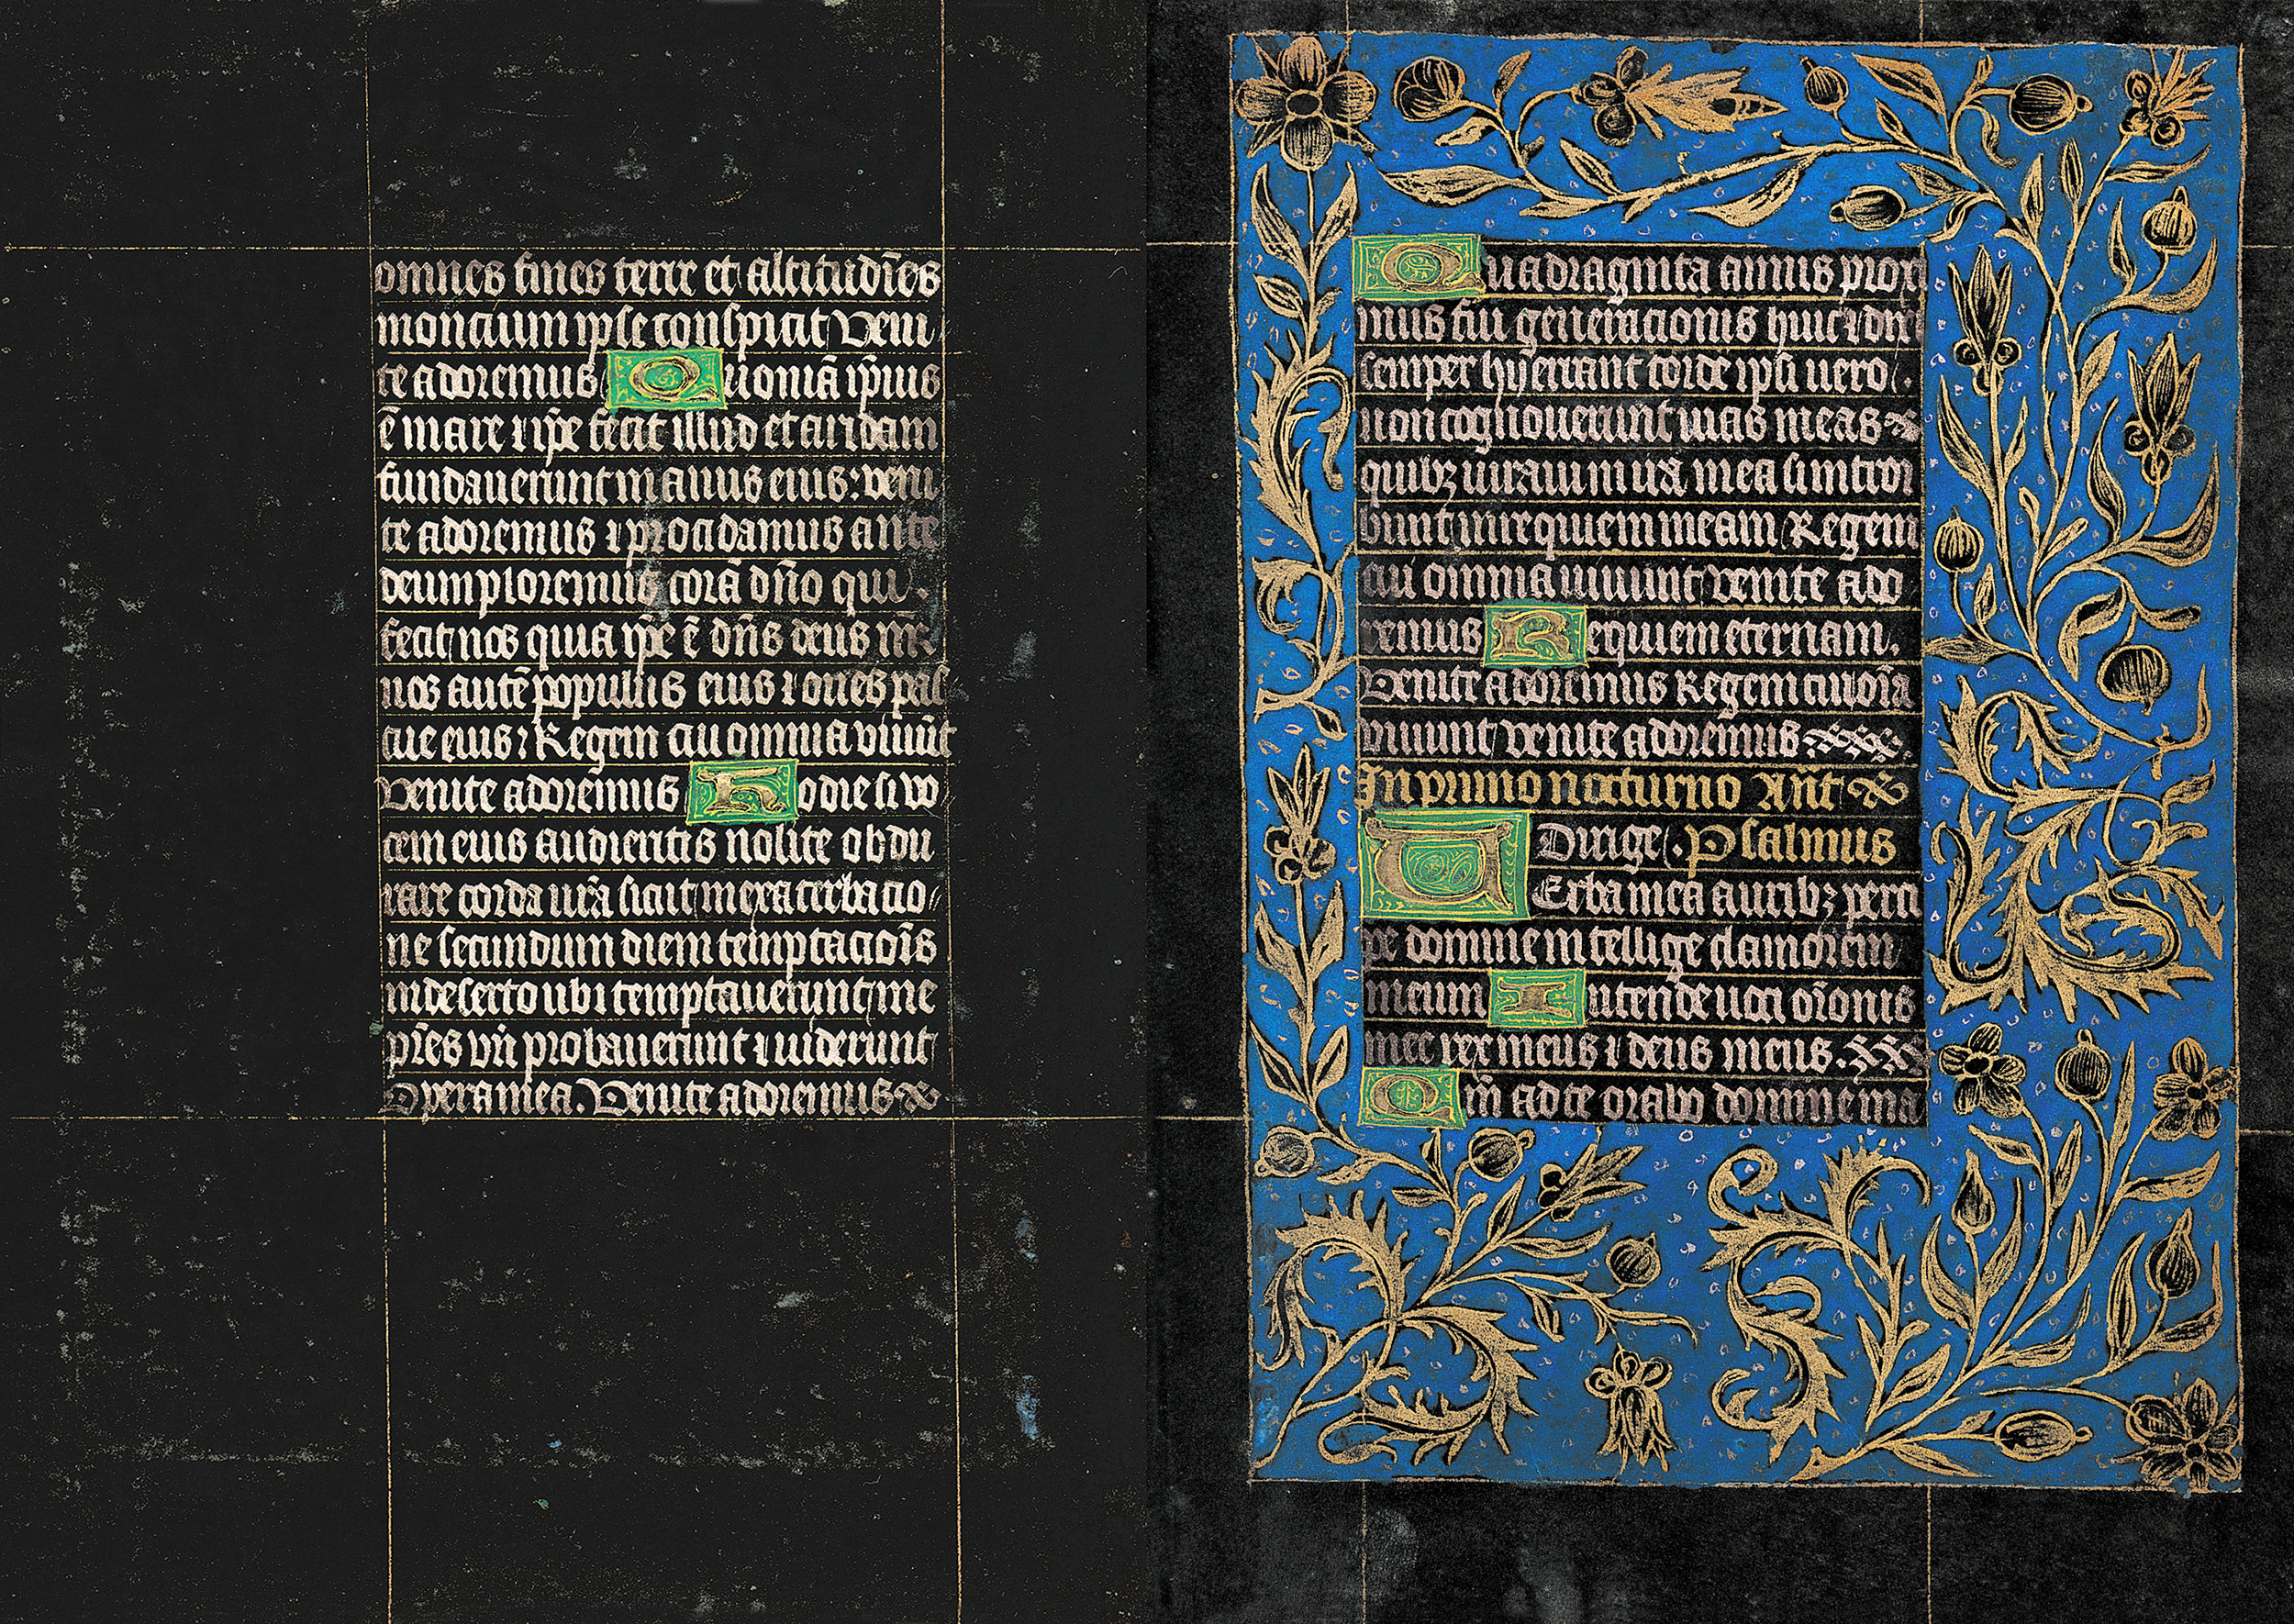 omnes fines terre et altitudīes
moncium ipse conspicit Veni
te adoremus Quoniā ip̄ius
ē mare ⁊ ip̄e fecit illud et aridam
fundauerunt manus eius: veni
te adoremus ⁊ procidamus ante
deum ploremus corā dn̄o qui.
fecit nos quia ip̄e ē dn̄s deus nr̄
nos autē populus eius ⁊ oues pas
cue eius ⁊ Regem cui omnia viuūt
Venite adoremus Hodie si vo
cem eius audieritis nolite obdu
rare corda vr̄a sicut in exacerbacio
ne secundum diem temptaciōis
in deserto ubi temptauerunt me
pr̄es vr̄i probauerunt ⁊ uiderunt
Opera mea. Venite adoremus
Quadraginta annis proxi
mus fui generacionis huic ⁊ dixi
semper hij errant corde ipsi uero.
non cognouerunt uias meas
quibꝫ iuraui in irā mea si intro
ibunt in requiem meam Regem
cui omnia uiuunt venite ado
remus Requiem eternam.
Venite adoremus Regem cui oīa
viuunt venite adoremus
In primo nocturno An̄t
Dirige. Psalmus
VErba mea auribꝫ perci
pe domine intellige clamorem
meum Intende uoci or̄onis
mee rex meus ⁊ deus meus.
Qm̄ ad te orabo domine ma